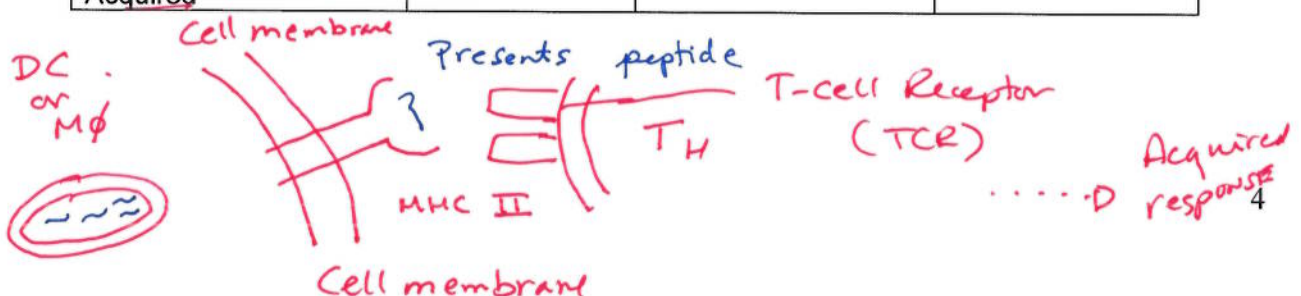 Acquired
Cell membrane
DC
or
Mϕ
Presents peptide
T-cell Receptor
(TCR)
TH
MHC II
Acquired
response
4
Cell membrane